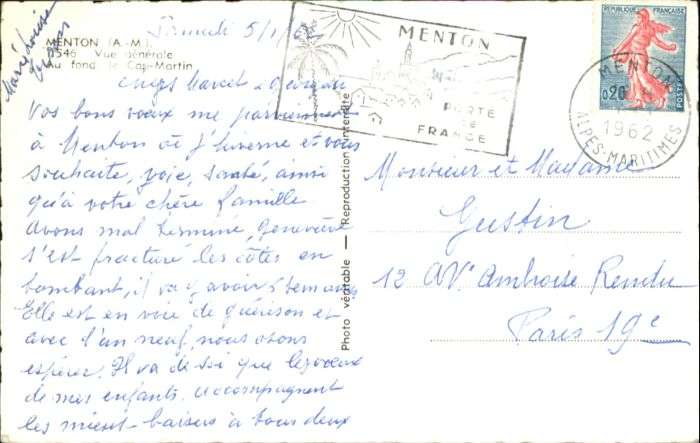 Samedi 5/1
Marylouise
MENTON (A.-M.)
1546 Vue Générale
Au fond Cap-Martin
Chers Marcel
Vos bons voeux me parviennent
à Menton où j'hiverne et vous
souhaite, joie, santé, ainsi
qu'à votre chère famille
avons mal terminé, Geneviève
s'est fracturé les côtes en
tombant, il va y avoir 5 semaines
Elle est en voie de guérison et
avec l'an neuf, nous osons
espérer. Il va de soi que les voeux
de mes enfants accompagnent
les miens baisers à tous deux
Photo véritable — Reproduction interdite
MENTON
PORTE
DE
FRANCE
REPUBLIQUE FRANÇAISE
0,20
POSTES
MENTON
1962
ALPES-MARITIMES
Monsieur et Madame
Gustin
12 AVe Ambroise Rendu
Paris 19e